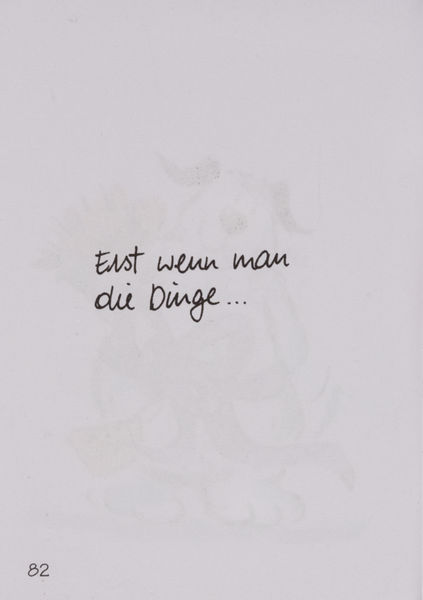 Erst wenn man
die Dinge...
82